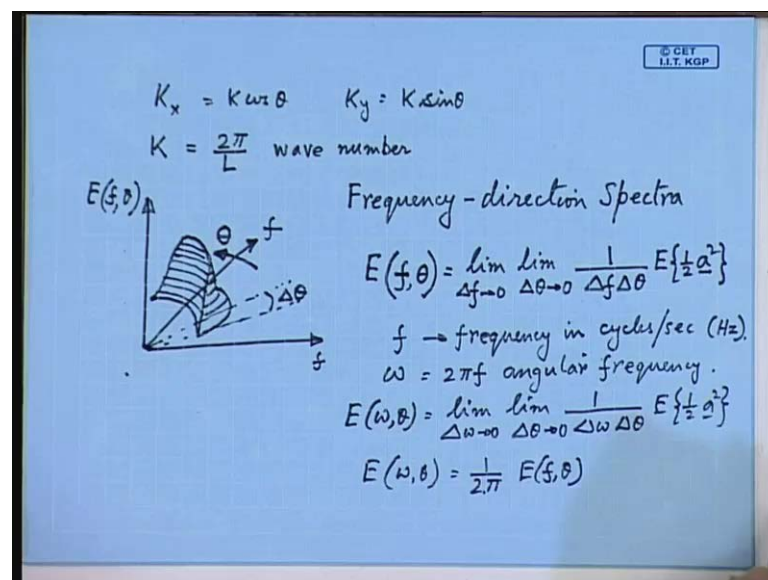 © CET
I.I.T. KGP
Kₓ = K cos θ    K_y = K sinθ
K = 2π/L wave number
E(f,θ)
θ
f
Δθ
f
Frequency-direction Spectra
E(f,θ) = lim Δf→0 lim Δθ→0 1/(Δf Δθ) E{½ a²}
f → frequency in cycles/sec (Hz).
ω = 2πf angular frequency.
E(ω,θ) = lim Δω→0 lim Δθ→0 1/(Δω Δθ) E{½ a²}
E(ω,θ) = 1/2π E(f,θ)